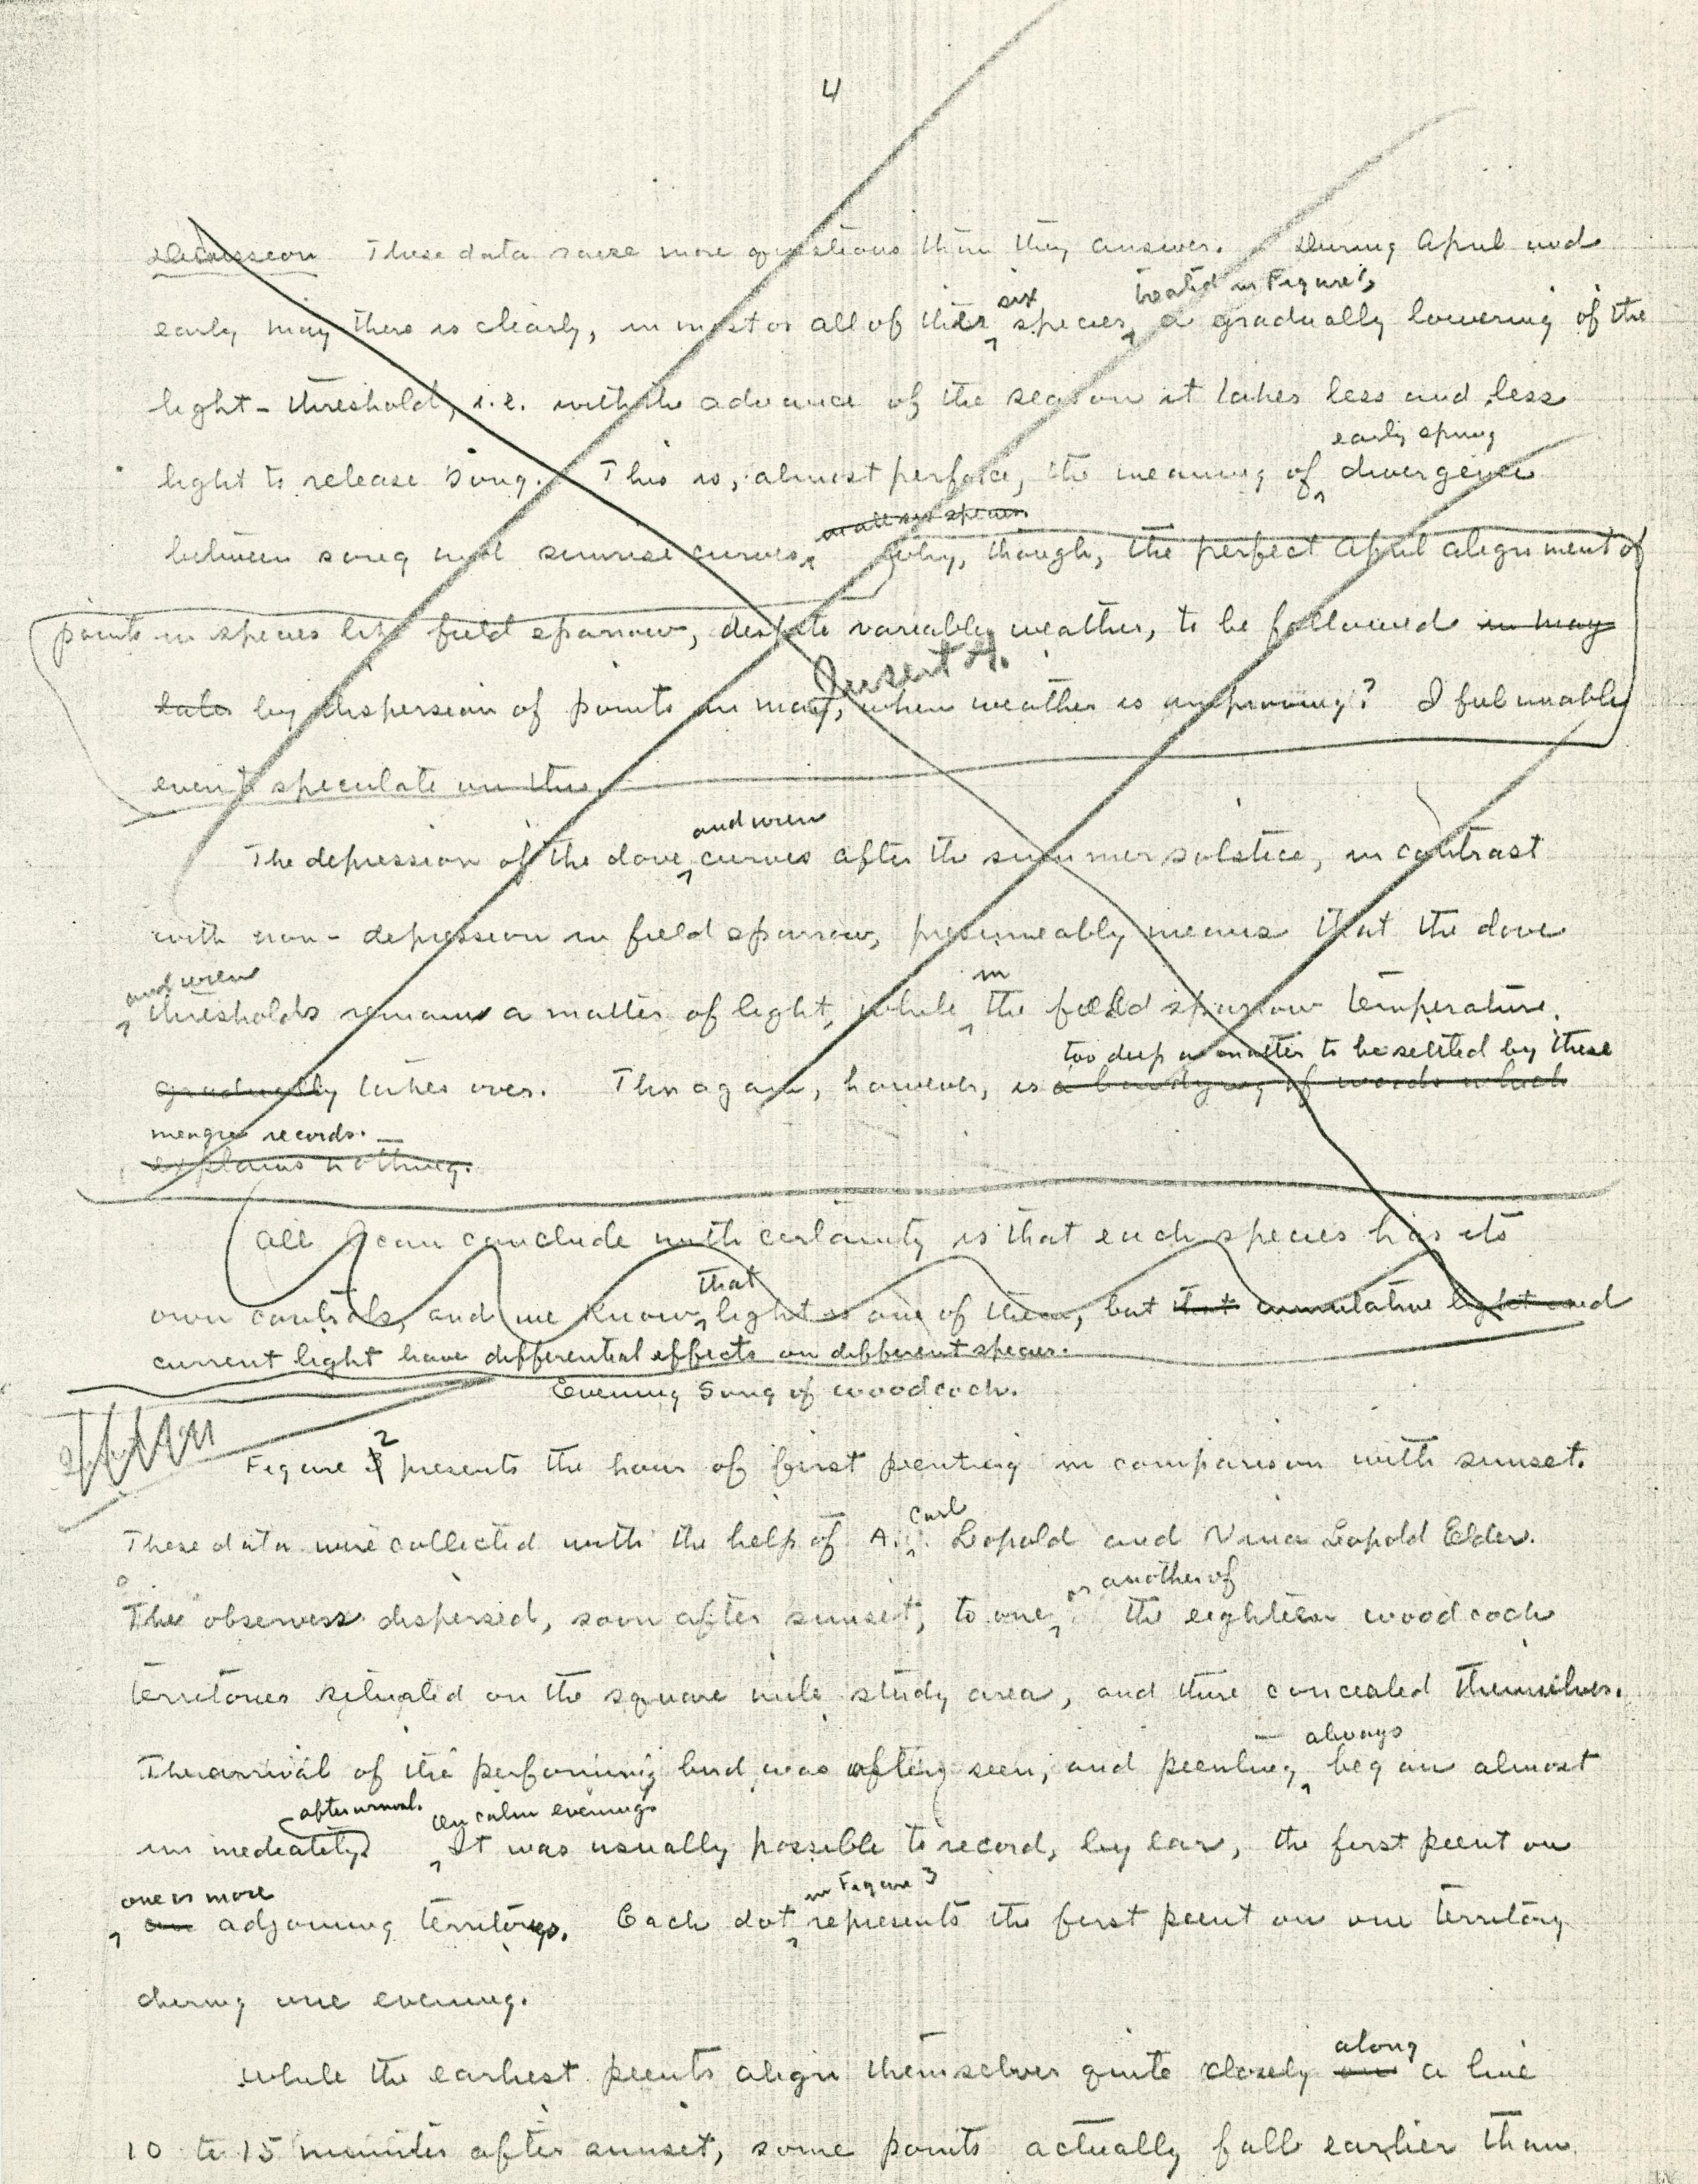 4
Discussion These data raise more questions than they answer. During April and
six treated in Figure 1,
early May there is clearly, in most or all of the species, a gradually lowering of the
light-threshold, i.e. with the advance of the season it takes less and less
early spring
light to release song. This is, almost perforce, the meaning of divergence
in all six species
between song and sunrise curves. Why, though, the perfect April alignment of
points in species like field sparrow, despite variable weather, to be followed in May
Insert A.
later by dispersion of points in May, when weather is improving? I feel unable
even to speculate on this.
and wren
The depression of the dove curves after the summer solstice, in contrast
with non-depression in field sparrow, presumeably means that the dove
and wren in
thresholds remains a matter of light, while the field sparrow temperature
too deep a matter to be settled by these
gradually takes over. This again, however, is a bandying of words which
meagre records.
explains nothing.
All I can conclude with certainty is that each species has its
that
own controls, and we know light is one of them, but that cumulative light and
current light have differential effects on different species.
Evening Song of Woodcock.
2
Figure 3 presents the hour of first peenting in comparison with sunset.
Carl
These data were collected with the help of A. Leopold and Nina Leopold Elder.
or another of
The observers dispersed, soon after sunset, to one the eighteen woodcock
territories situated on the square mile study area, and there concealed themselves.
always
The arrival of the performing bird was often seen, and peenting began almost
after arrival. On calm evenings
immediately It was usually possible to record, by ear, the first peent on
one or more in Figure 3
an adjoining territorys. Each dot represents the first peent on one territory
during one evening.
along
While the earliest peents align themselves quite closely on a line
10 to 15 minutes after sunset, some points actually fall earlier than